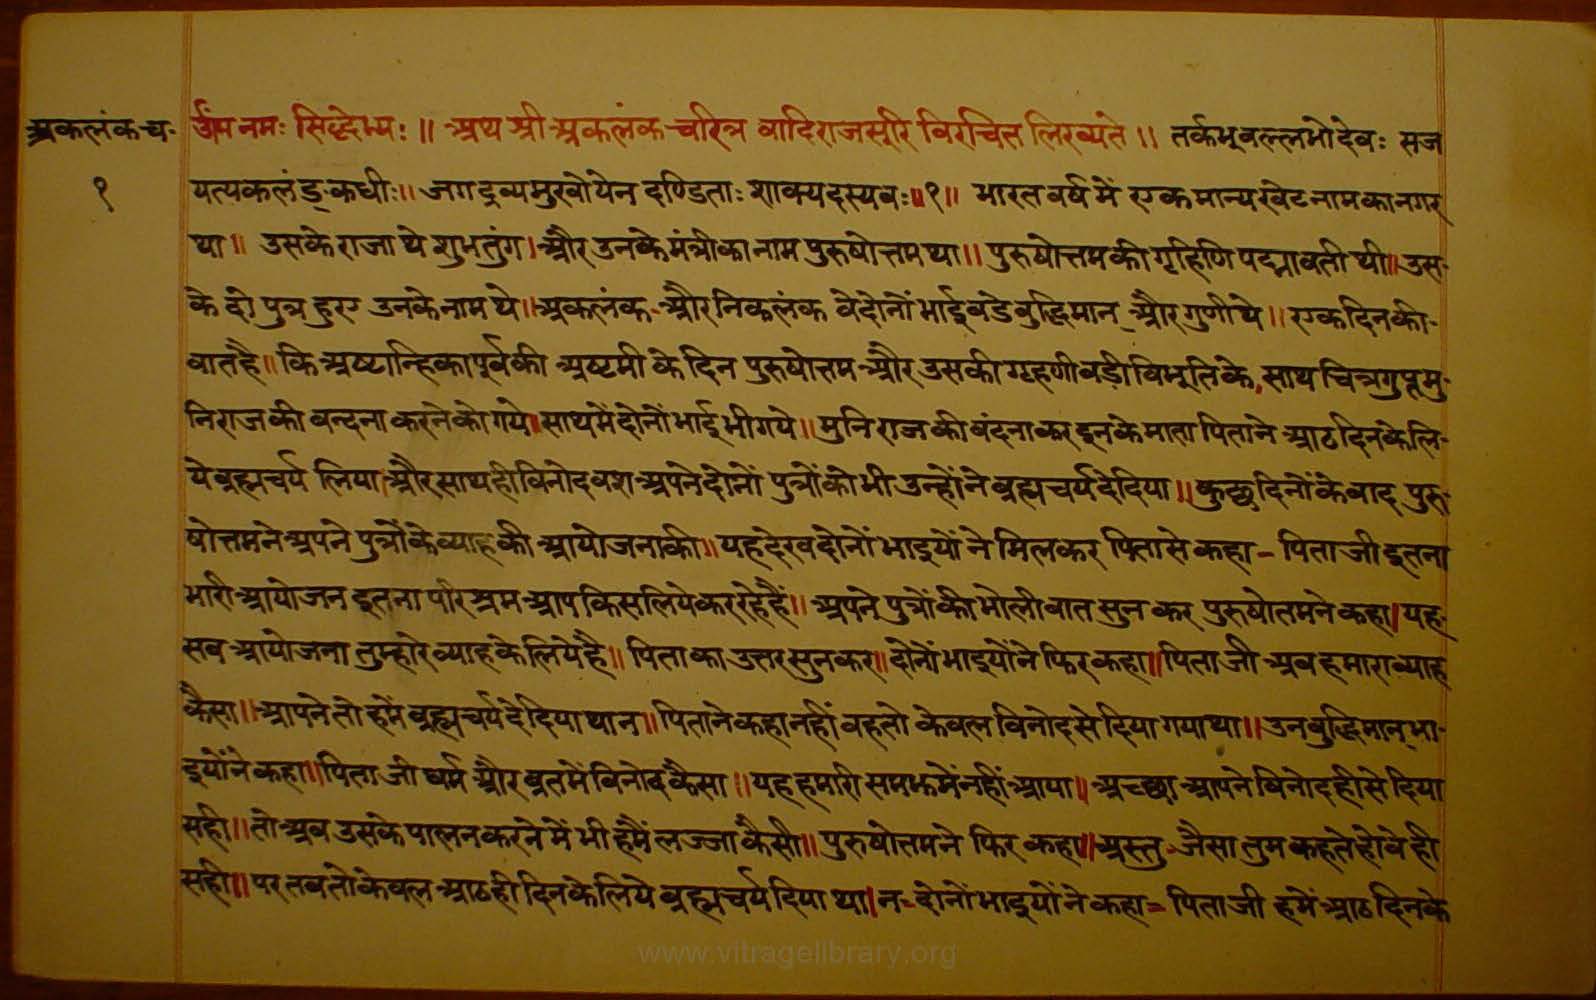 अकलंक च॰ ॐम नमः सिद्धेभ्यः॥ अथ श्री अकलंक-चरित्र वादिराजसूरि विरचित लिख्यते॥ तर्कभूवल्लभो देवः सज
१ यत्यकलंङ्कधीः॥ जगद्द्रव्यमुखो येन दण्डिताः शाक्यदस्यवः॥१॥ भारत वर्ष में एक मान्यखेट नाम का नगर
था॥ उसके राजा थे शुभतुंग। और उनके मंत्री का नाम पुरुषोत्तम था॥ पुरुषोत्तम की गृहिणि पद्मावती थी॥ उस-
के दो पुत्र हुए उनके नाम थे॥ अकलंक- और निकलंक वे दोनों भाई बडे बुद्धिमान् और गुणी थे॥ एक दिन की-
बात है॥ कि अष्टान्हिका पूर्व की अष्टमी के दिन पुरुषोत्तम और उसकी गृहणी बड़ी विभूति के, साथ चित्रगुप्त मु-
निराज की वन्दना करने को गये॥ साथ में दोनों भाई भी गये॥ मुनिराज की वंदना कर इनके माता पिता ने आठ दिन के लि-
ये ब्रह्मचर्य लिया। और साथ ही विनोद वश अपने दोनों पुत्रों को भी उन्हों ने ब्रह्मचर्य दे दिया॥ कुछ दिनों के बाद पुरु-
षोत्तम ने अपने पुत्रों के व्याह की आयोजना की॥ यह देख दोनों भाइयों ने मिलकर पिता से कहा- पिता जी इतना
भारी आयोजन इतना परिश्रम आप किस लिये कर रहे हैं॥ अपने पुत्रों की भोली बात सुन कर पुरुषोतम ने कहा। यह-
सब आयोजना तुम्हारे व्याह के लिये है॥ पिता का उत्तर सुनकर॥ दोनों भाइयों ने फिर कहा॥ पिता जी अब हमारा व्याह
कैसा॥ आपने तो हमें ब्रह्मचर्य दे दिया था न॥ पिता ने कहा नहीं वह तो केवल विनोद से दिया गया था॥ उन बुद्धिमान् भा-
इयों ने कहा॥ पिता जी धर्म और व्रत में विनोद कैसा॥ यह हमारी समझ में नहीं आया॥ अच्छा आपने विनोद ही से दिया
सही॥ तो अब उसके पालन करने में भी हमैं लज्जा कैसी॥ पुरुषोत्तम ने फिर कहा॥ अस्तु- जैसा तुम कहते हो वे ही
सही॥ पर तब तो केवल आठ ही दिन के लिये ब्रह्मचर्य दिया था। न- दोनों भाइयों ने कहा- पिता जी हमें आठ दिन के
www.vitragelibrary.org